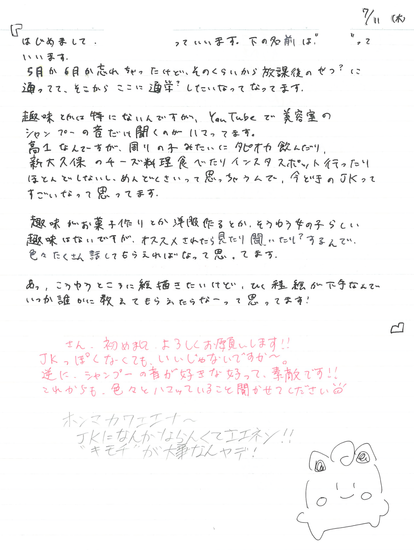 7/11 (木)
はじめまして. っていいます。下の名前は" "って
いいます。
5月か6月か忘れちゃったけど、そのくらいから放課後のぜっﾟに
通ってて、そこからここに通学したいなってなってます。
趣味とかは特にないんですが、YouTubeで美容室の
シャンプーの音だけ聞くのがハマってます。
高1なんですが、周りの子みたいにタピオカ飲んだり、
新大久保のチーズ料理食べたりインスタスポット行ったり
ほとんどしないし、めんどくさいって思っちゃうんで、今どきのJKって
すごいなって思ってます。
趣味がお菓子作りとか洋服作るとか、そうゆう女の子らしい
趣味はないですが、オススメされたら見たり聞いたりするんで、
色々たくさん話してもらえればなって思ってます。
あっ、こうゆうところに絵描きたいけど、ひく程絵が下手なんで
いつか誰かに教えてもらえたらなーって思ってます!
さん、初めまして、よろしくお願いします!!
JKっぽくなくても、いいじゃないですか〜。
逆に、シャンプーの音が好きな好って、素敵です!!
これからも、色々とハマっていること聞かせてください
ホンマカワエエナ〜
JKになんかならんくてエエネン!!
"キモチ"が大事なんヤデ!